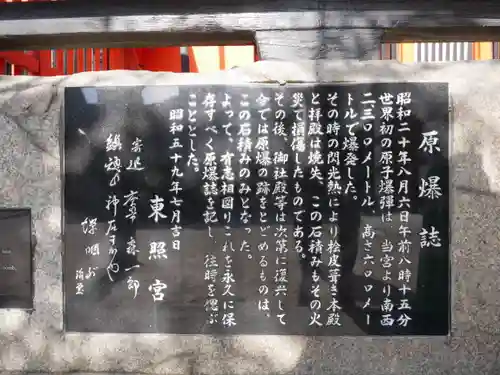 原爆誌
昭和二十年八月六日午前八時十五分
世界初の原子爆弾は、当宮より南西
二、三〇〇メートル、高さ六〇〇メー
トルで爆発した。
その時の閃光熱により桧皮葺き本殿
と拝殿は焼失、この石積みもその火
災で損傷したものである。
その後、御社殿等は次第に復興して
今では原爆の跡をとどめるものは、
この石積みのみとなった。
よって、有志相図りこれを永久に保
存すべく原爆誌を記し、往時を偲ぶ
こととした。
昭和五十九年七月吉日
東照宮